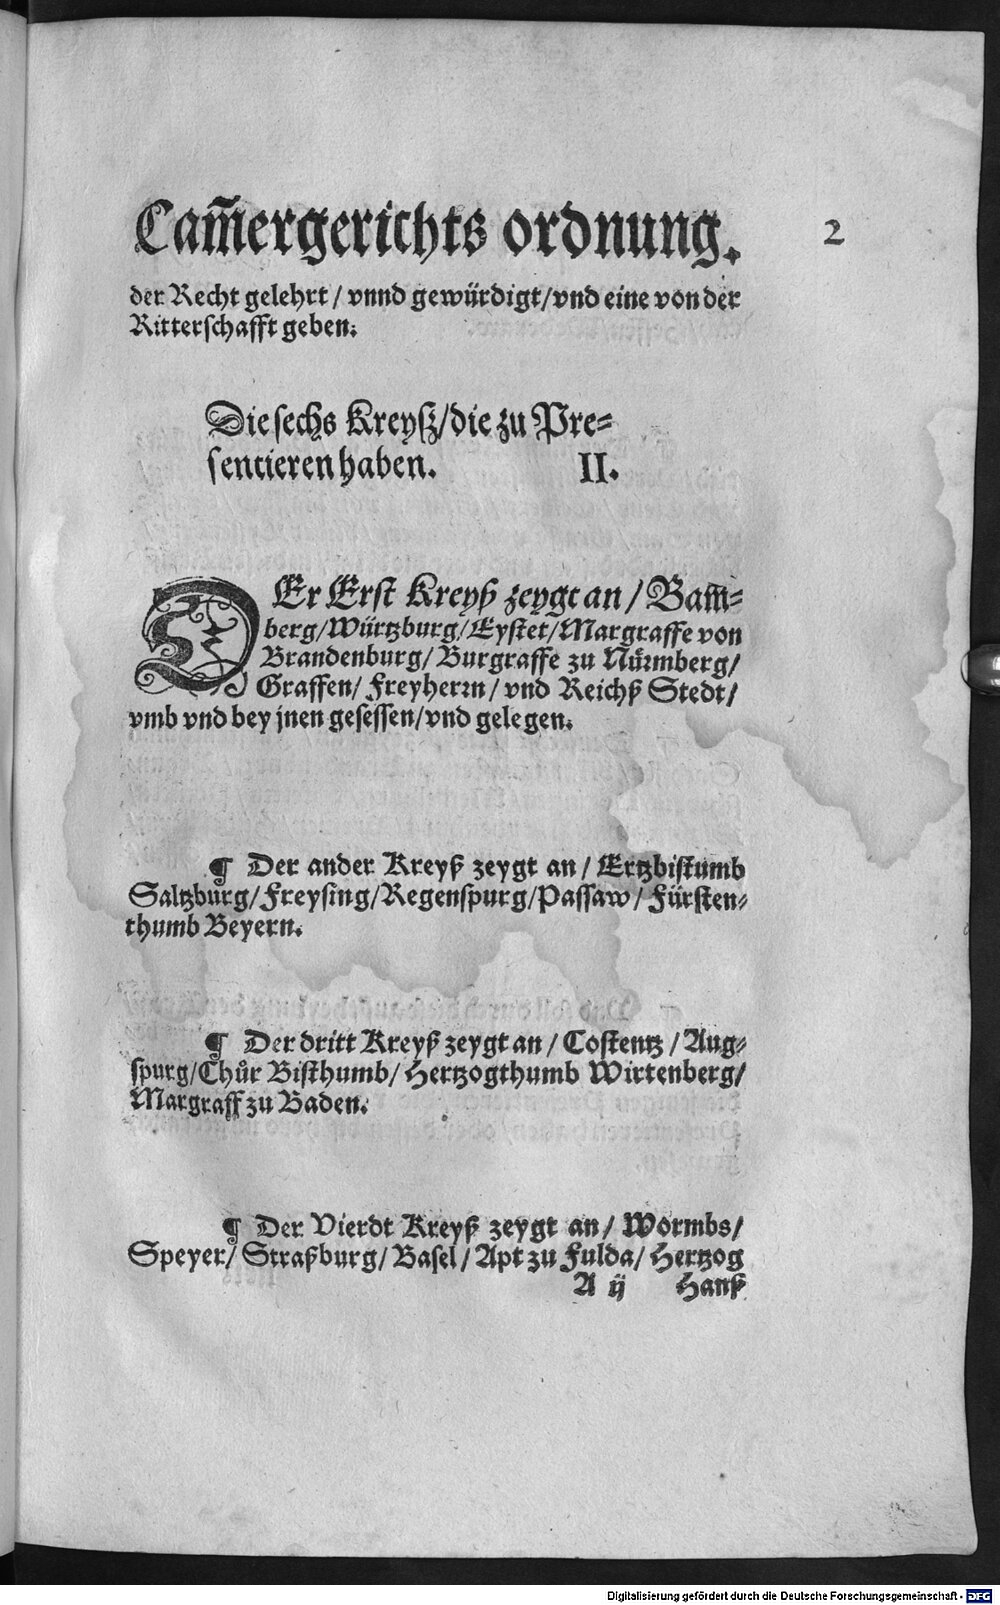 Cam̃ergerichts ordnung.
2
der Recht gelehrt / vnnd gewürdigt / vnd eine von der
Ritterschafft geben.
Die sechs Kreyſz / die zu Pre⸗
sentieren haben. II.
DEr Erst Kreyß zeygt an / Bam̃⸗
berg / Würtzburg / Eystet / Margraffe von
Brandenburg / Burgraffe zu Nürmberg /
Graffen / Freyherrn / vnd Reichß Stedt /
vmb vnd bey jnen gesessen / vnd gelegen.
¶ Der ander Kreyß zeygt an / Ertzbistumb
Saltzburg / Freysing / Regenspurg / Passaw / Fürsten⸗
thumb Beyern.
¶ Der dritt Kreyß zeygt an / Costentz / Aug⸗
spurg / Chůr Bisthumb / Hertzogthumb Wirtenberg /
Margraff zu Baden.
¶ Der Vierdt Kreyß zeygt an / Wormbs /
Speyer / Straßburg / Basel / Apt zu Fulda / Hertzog
A ij Hanß
Digitalisierung gefördert durch die Deutsche Forschungsgemeinschaft - DFG